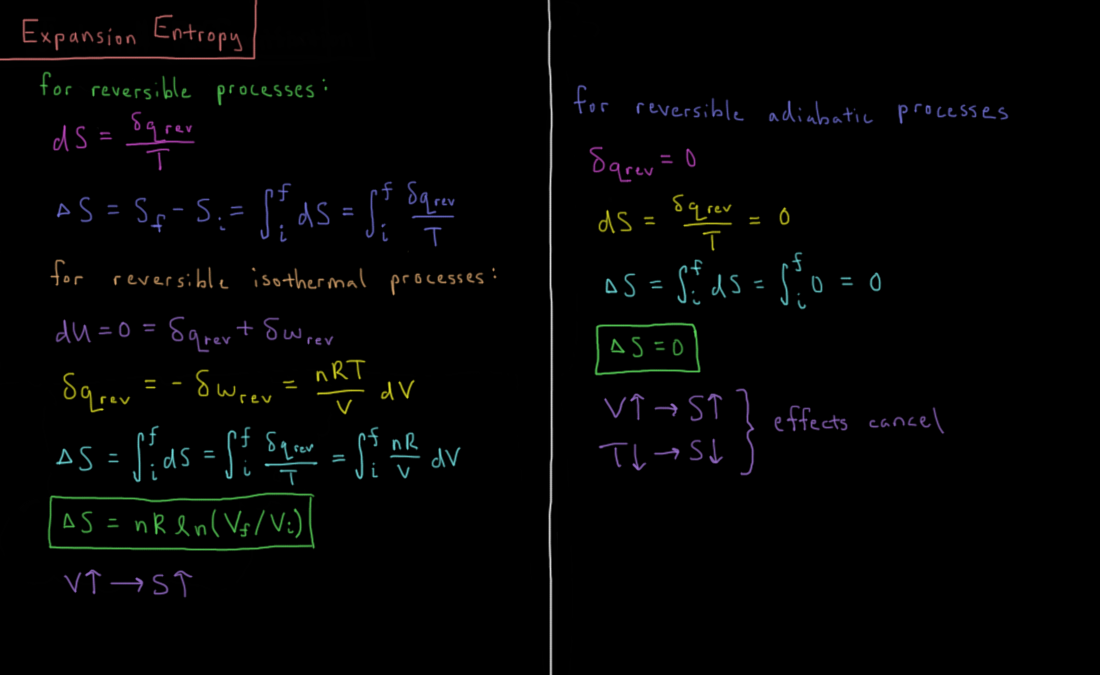 Expansion Entropy
for reversible processes:
dS = δq_rev / T
ΔS = S_f - S_i = ∫_i^f dS = ∫_i^f δq_rev / T
for reversible isothermal processes:
dU = 0 = δq_rev + δw_rev
δq_rev = - δw_rev = nRT / V dV
ΔS = ∫_i^f dS = ∫_i^f δq_rev / T = ∫_i^f nR / V dV
ΔS = nR ln(V_f / V_i)
V↑ → S↑
for reversible adiabatic processes
δq_rev = 0
dS = δq_rev / T = 0
ΔS = ∫_i^f dS = ∫_i^f 0 = 0
ΔS = 0
V↑ → S↑
T↓ → S↓ } effects cancel